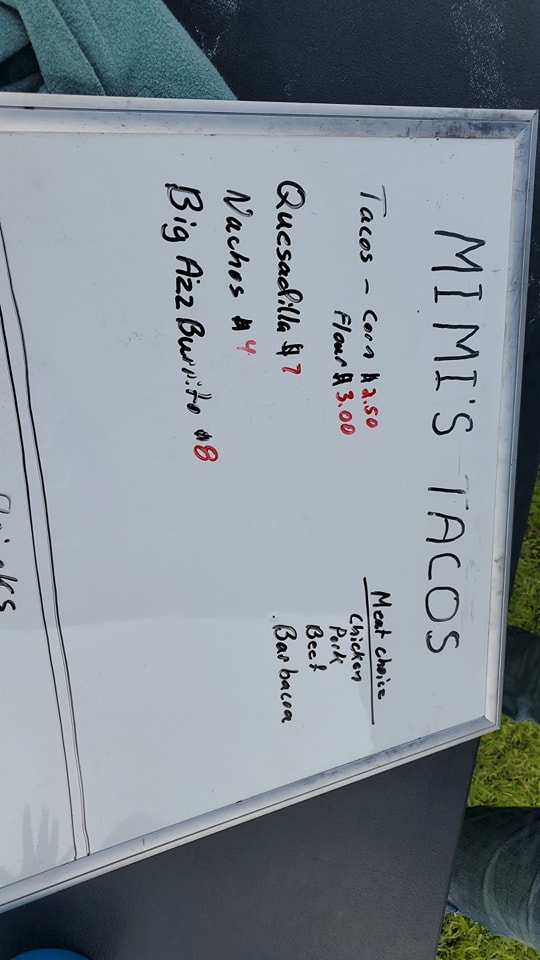 MIMI'S TACOS
Tacos - Corn $2.50
Flour $3.00
Quesadilla $7
Nachos $4
Big Azz Burrito $8
Meat choice
Chicken
Pork
Beef
Barbacoa